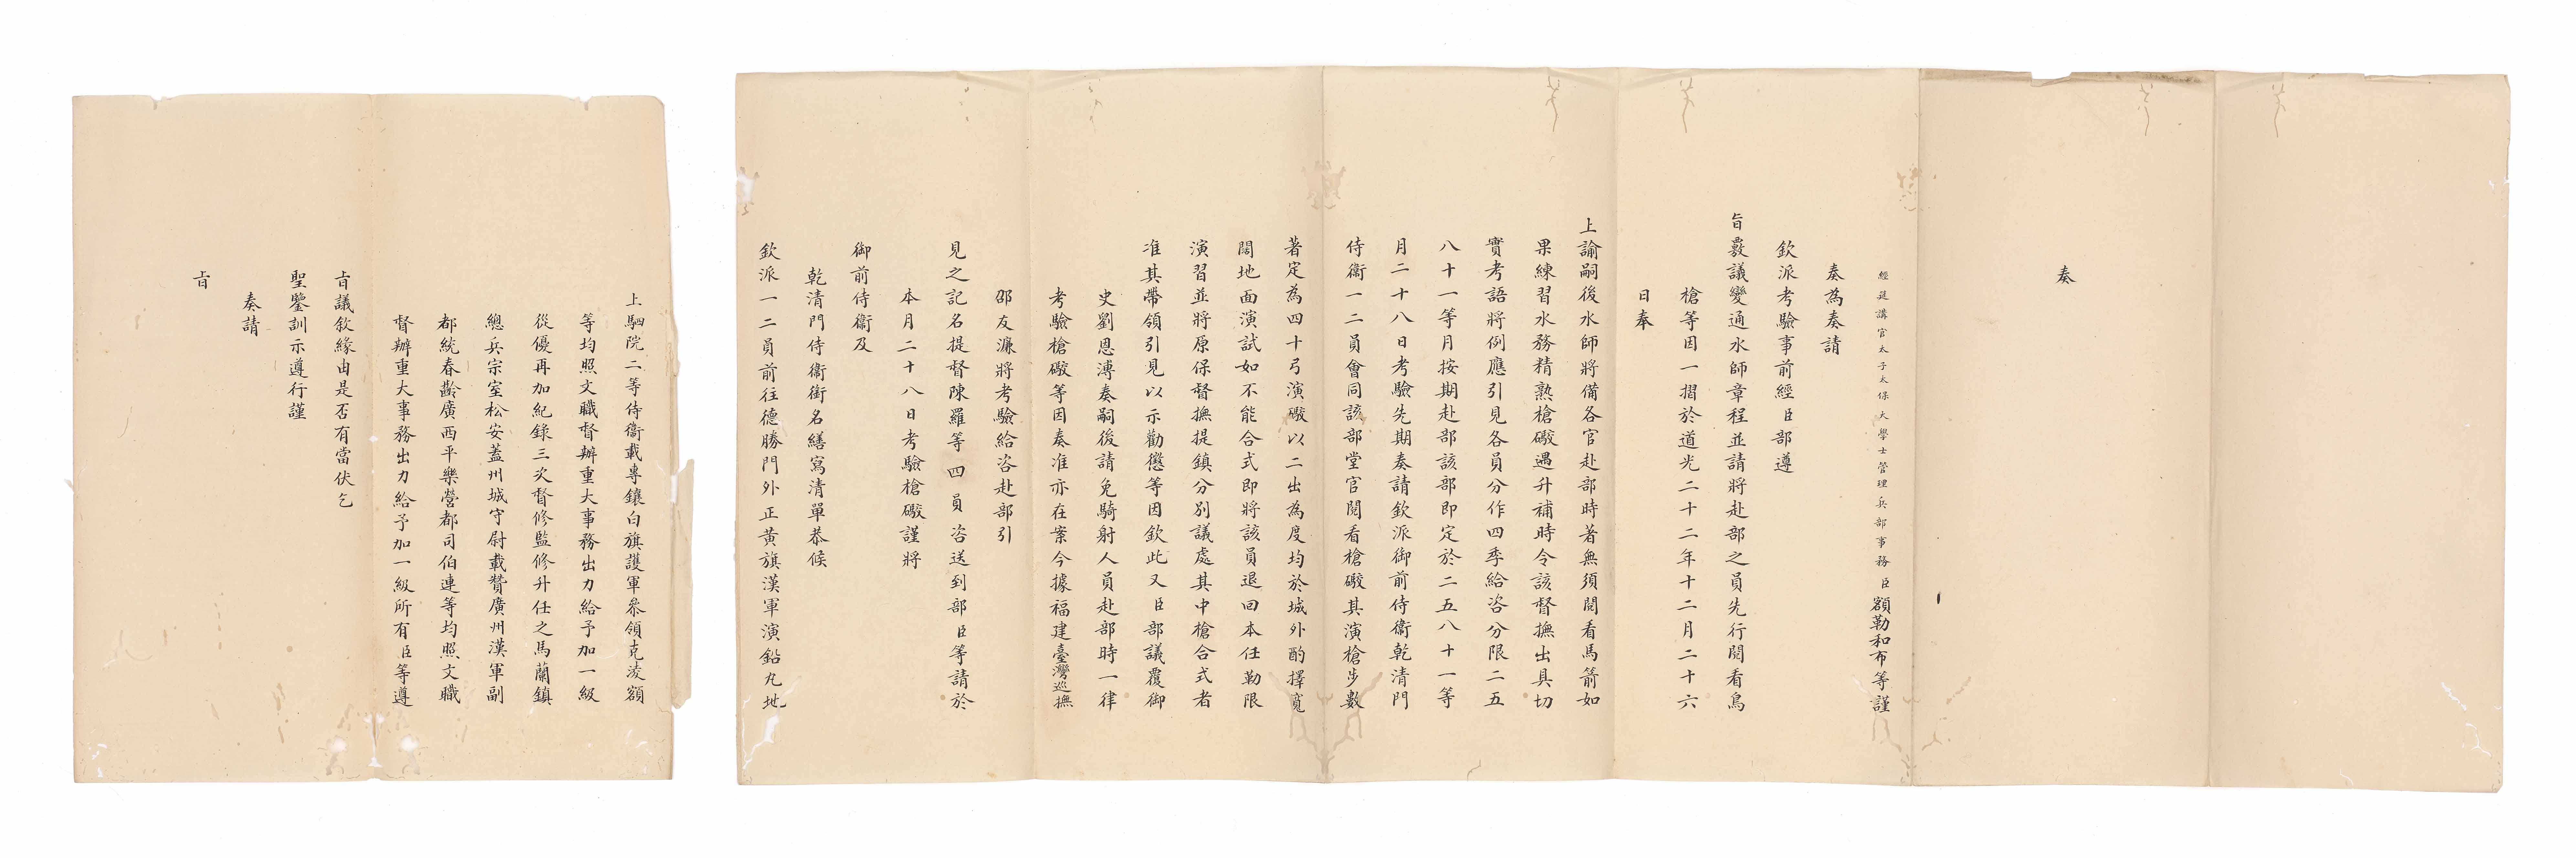 奏
經筵講官太子太保大學士管理兵部事務臣額勒和布等謹
奏為奏請
欽派考驗事前經臣部遵
旨覈議變通水師章程並請將赴部之員先行閱看鳥
槍等因一摺於道光二十二年十二月二十六
日奉
上諭嗣後水師將備各官赴部時著無須閱看馬箭如
果練習水務精熟槍礮遇升補時令該督撫出具切
實考語將例應引見各員分作四季給咨分限二五
八十一等月按期赴部該部即定於二五八十一等
月二十八日考驗先期奏請欽派御前侍衞乾清門
侍衞一二員會同該部堂官閱看槍礮其演槍步數
著定為四十弓演礮以二出為度均於城外酌擇寬
闊地面演試如不能合式即將該員退回本任勒限
演習並將原保督撫提鎮分別議處其中槍合式者
准其帶領引見以示勸懲等因欽此又臣部議覆御
史劉恩溥奏嗣後請免騎射人員赴部時一律
考驗槍礮等因奏准亦在案今據福建臺灣巡撫
邵友濂將考驗給咨赴部引
見之記名提督陳羅等四員咨送到部臣等請於
本月二十八日考驗槍礮謹將
御前侍衞及
乾清門侍衞銜名繕寫清單恭候
欽派一二員前往德勝門外正黃旗漢軍演鉛丸地
上駟院二等侍衞載專鑲白旗護軍參領克淩額
等均照文職督辦重大事務出力給予加一級
從優再加紀錄三次督修監修升任之馬蘭鎮
總兵宗室松安蓋州城守尉載贊廣州漢軍副
都統春齡廣西平樂營都司伯連等均照文職
督辦重大事務出力給予加一級所有臣等遵
旨議敘緣由是否有當伏乞
聖鑒訓示遵行謹
奏請
旨